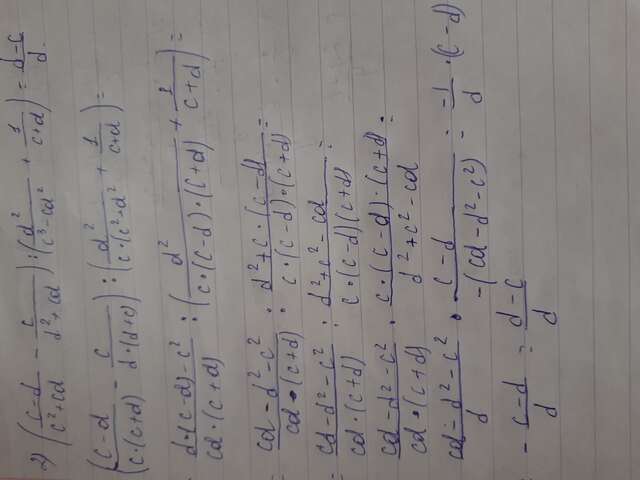 2) ((c-d)/(c²+cd) - c/(d²+cd)) : (d²/(c³-cd²) + 1/(c+d)) = (d-c)/d
((c-d)/(c·(c+d)) - c/(d·(d+c))) : (d²/(c·(c²+d²)) + 1/(c+d)) =
(d·(c-d)-c²)/(cd·(c+d)) : (d²/(c·(c-d)·(c+d)) + 1/(c+d)) =
(cd-d²-c²)/(cd·(c+d)) : (d²+c·(c-d))/(c·(c-d)·(c+d)) =
= (cd-d²-c²)/(cd·(c+d)) : (d²+c²-cd)/(c·(c-d)(c+d)) =
(cd-d²-c²)/(cd·(c+d)) · (c·(c-d)·(c+d))/(d²+c²-cd) =
(cd-d²-c²)/d · (c-d)/(-(cd-d²-c²)) = -1/d · (c-d)
= -(c-d)/d = (d-c)/d